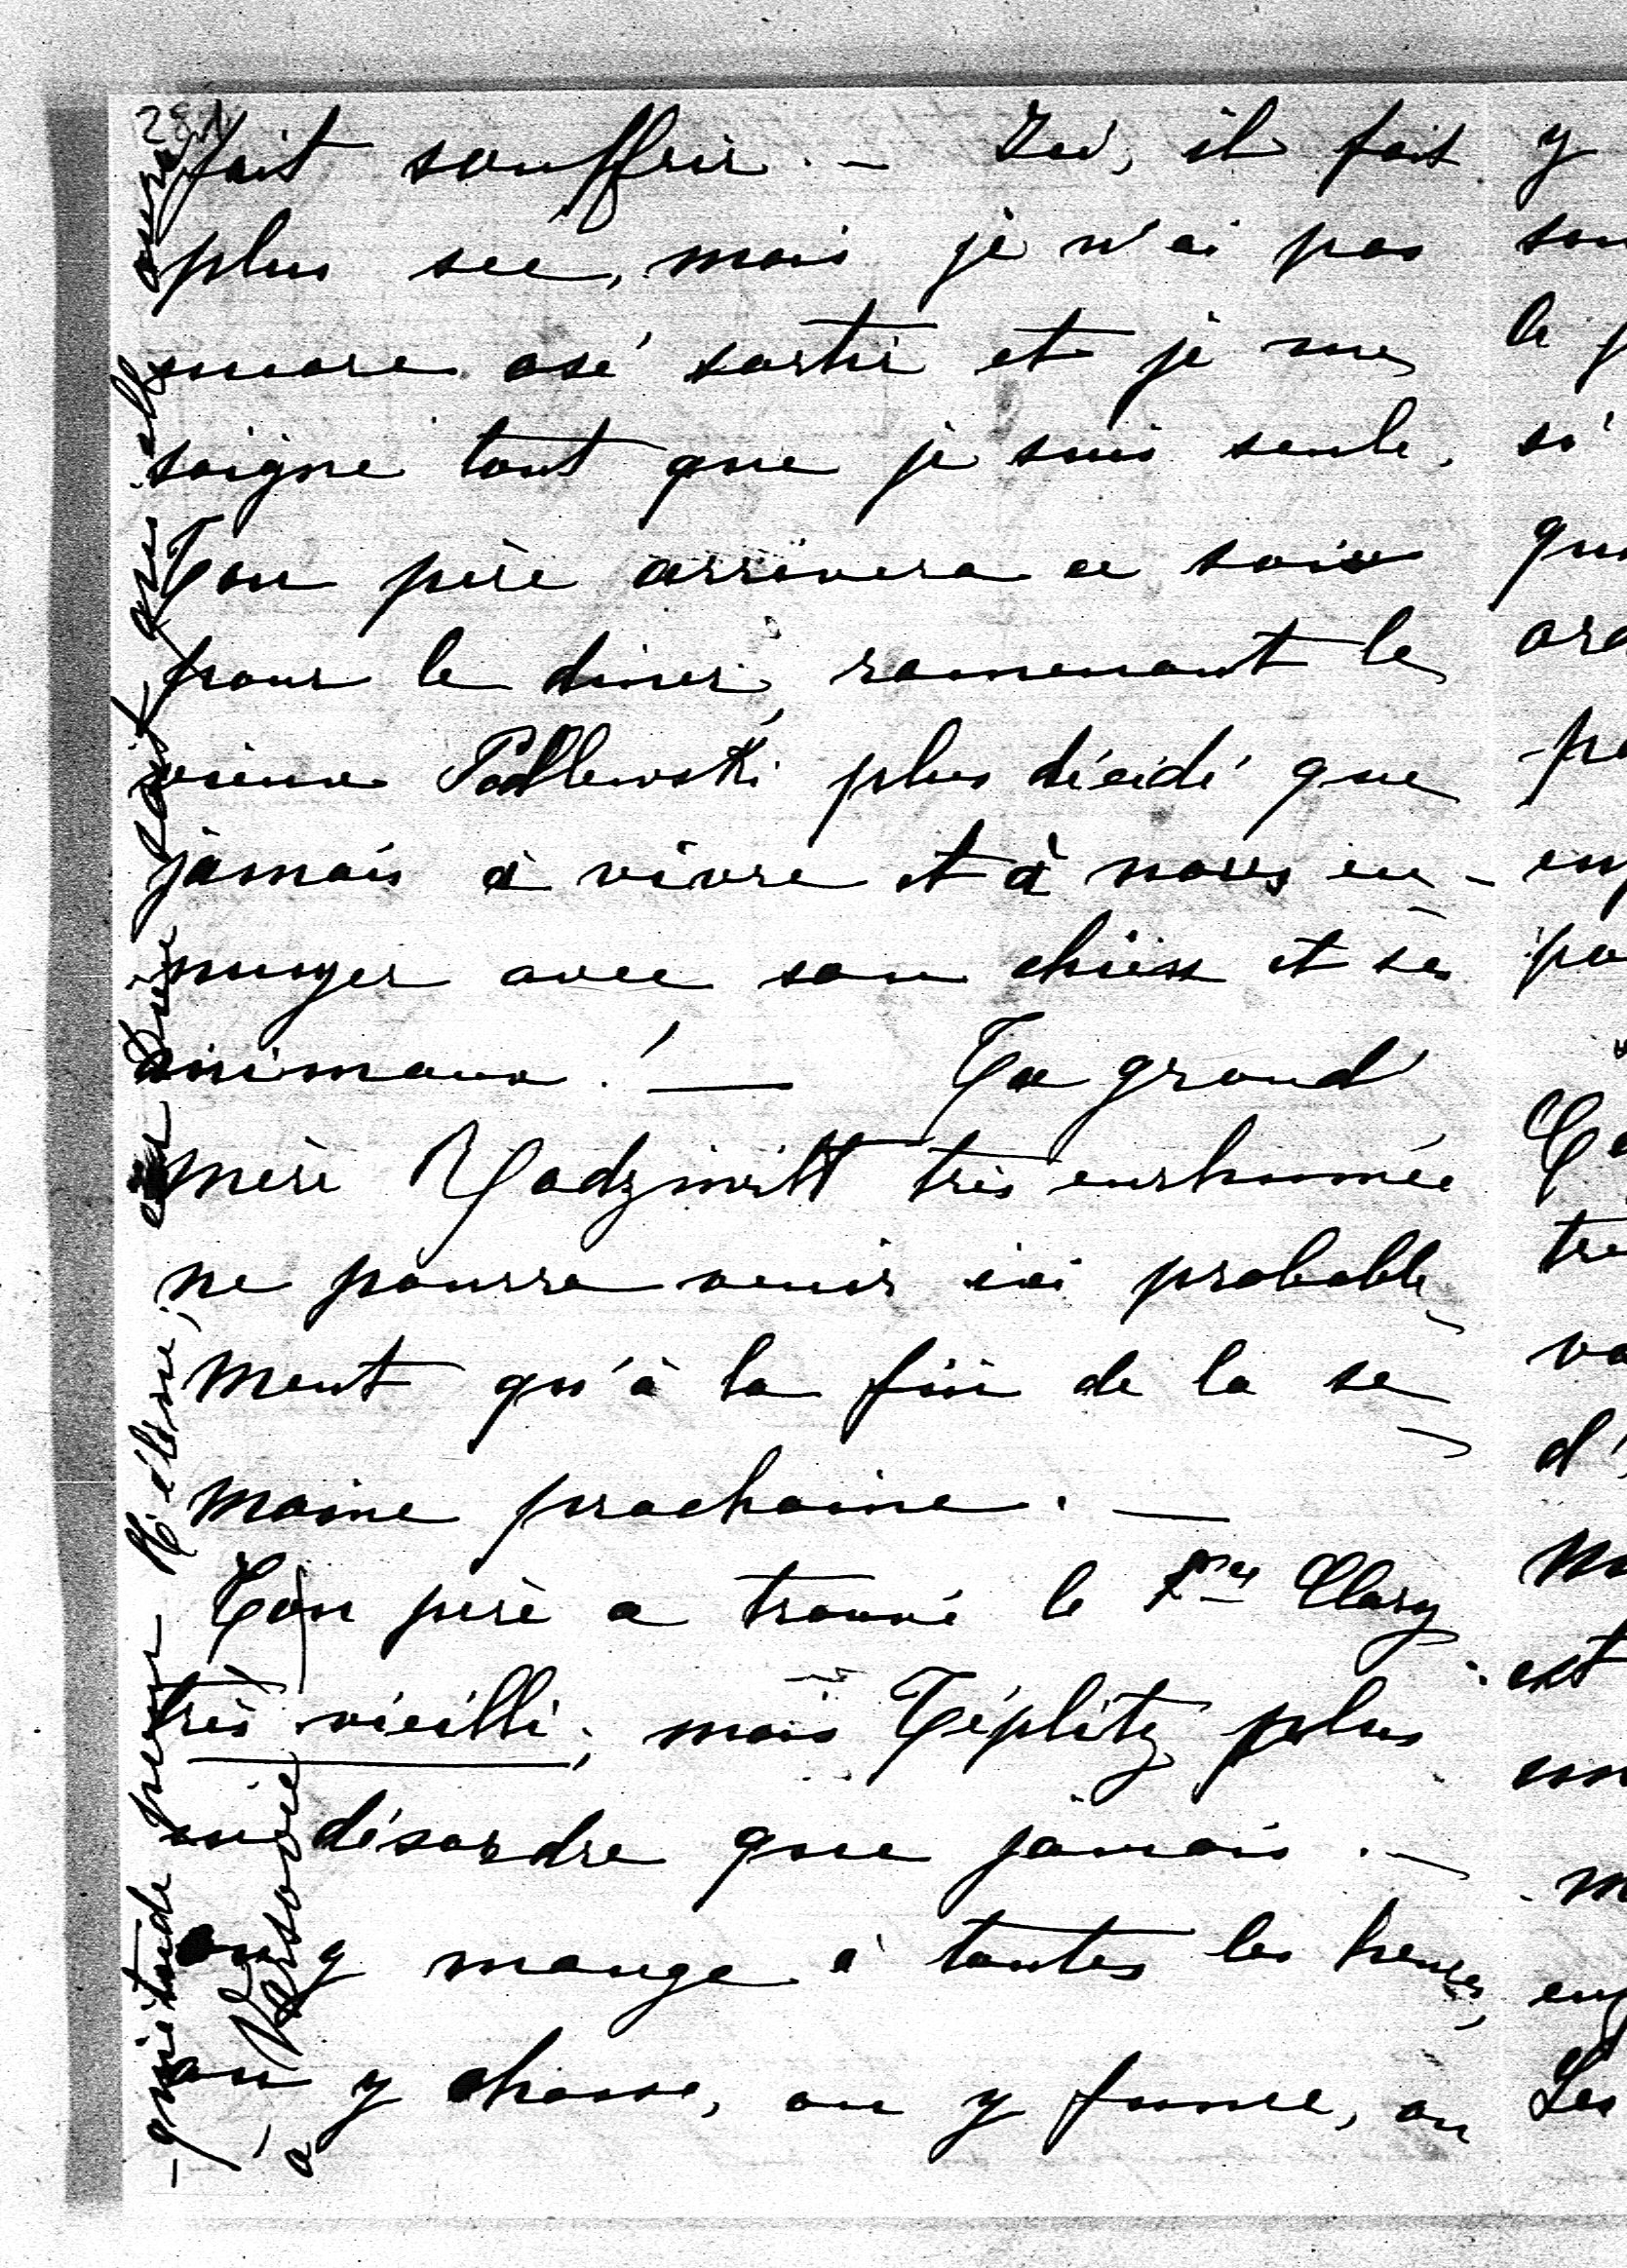 fait souffrir. – Ici, il fait
plus sec, mais je n'ai pas
encore osé sortir et je me
soigne tant que je suis seule.
Ton père arrivera ce soir
pour le diner, ramenant le
vieux Podlewski plus décidé que
jamais à vivre et à nous en-
nuyer avec son chien et ses
animaux! — Ta grand
mère Radziwill très enrhumée
ne pourra venir ici probable-
ment qu'à la fin de la se-
maine prochaine. —
Ton père a trouvé le Pce Clary
très vieilli, mais Téplitz plus
en désordre que jamais. –
on y mange à toutes les heures,
on y chasse, on y fume, on
-quiétude pour Hélène, car Dieu sait que elle aura
à Varsovie
y
son
la
si
qu
ord
pa
en
pa
tre
va
d'
est
en
Les